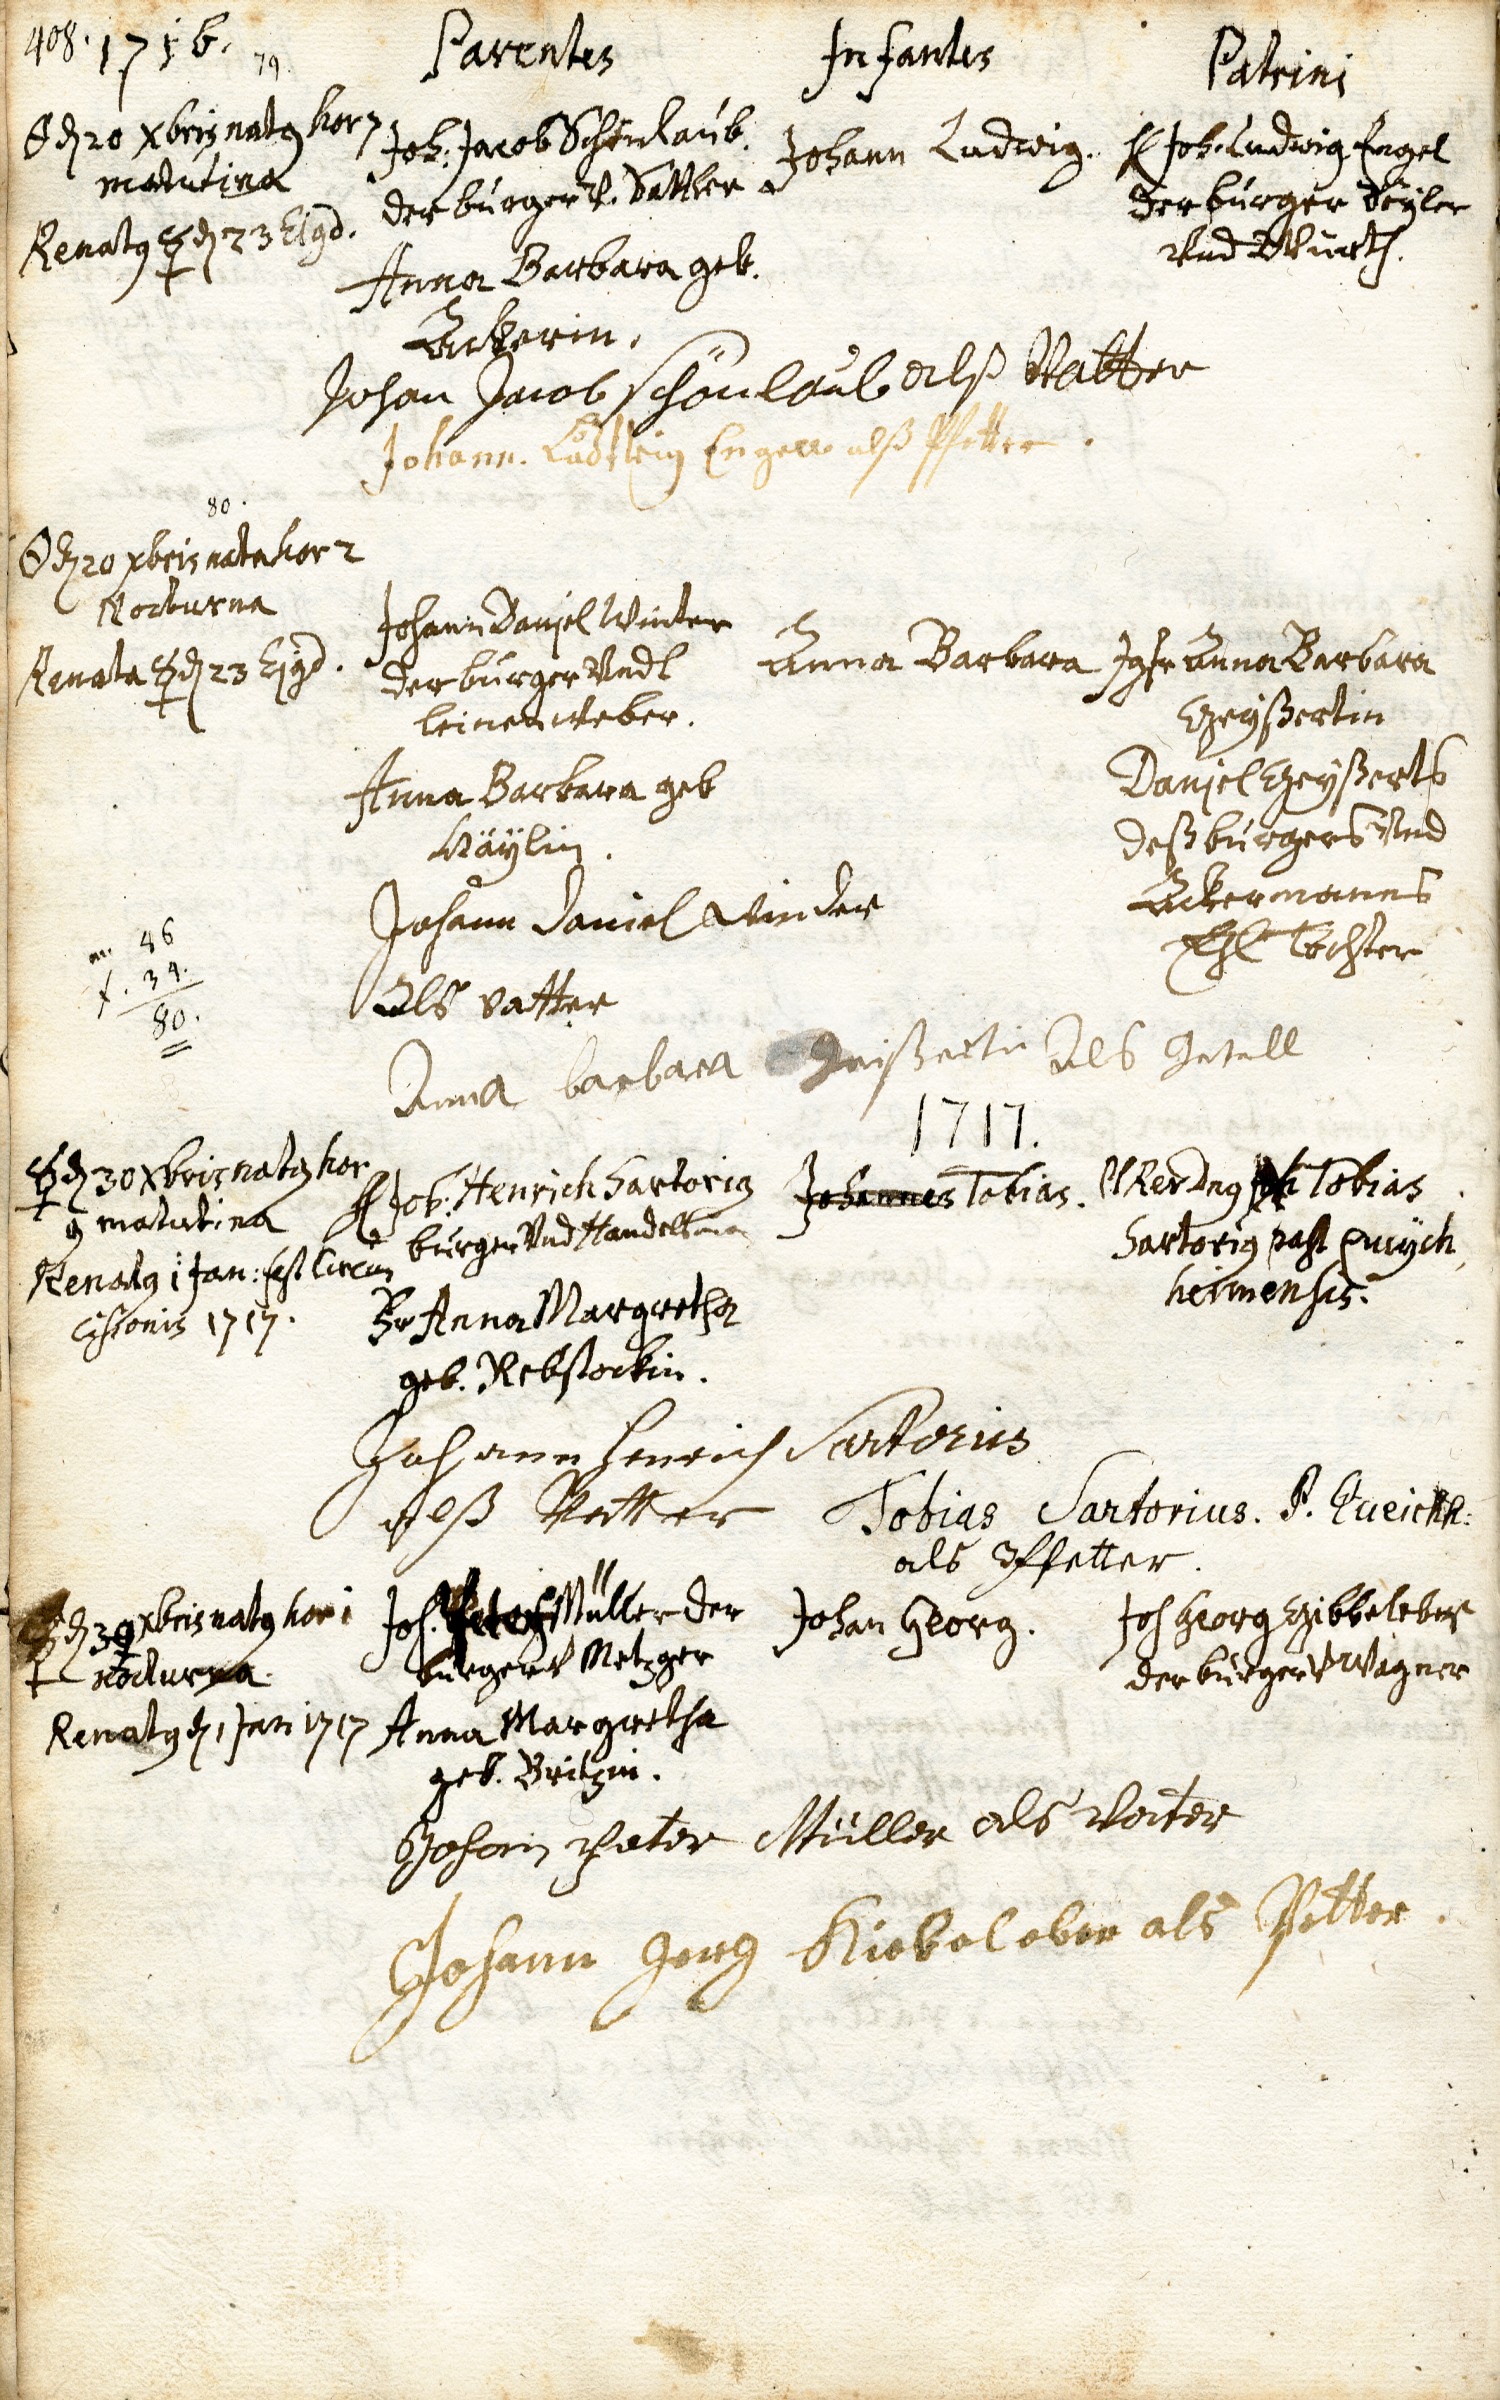 408. 1716.
Parentes
Infantes
Patrini
79.
d 20 Xbris natq hor 7
matutina
Renatq d 23 Ejqd.
Joh: Jacob Schönlaub.
der bürger V. Sattler
Anna Barbara geb.
Ackerin.
Johann Ludwig.
H Joh. Ludwig Engel
der bürger
Und Würth.
Johan Jacob Schönlaub alß Vatter
Johann. Ludwig Engel alß Pfetter.
80.
d 20 xbris nata hor 2
Nocturna
Renata d 23 Ejqd.
Johann Daniel Winter
der bürger Und
leinenweber.
Anna Barbara geb
Anna Barbara
Jgfr Anna Barbara
Geyßertin
Daniel Geyßerts
deß bürgers Und
Ackermanns
Ehl Tochter
Johann Daniel Winder
Als vatter
m. 46
f. 34.
80.
Anna barbara Geißertin Als Getell
1717.
d 30 Xbris natq hor
9 matutina
Renatq 1 Jan: fest Circum
cisionis 1717.
H Joh. Henrich Sartoriq
bürger Und Handelsman
Fr Anna Margretha
geb. Rebstockin.
Johannes Tobias.
Tobias
Sartoriq past Queich
heimensis.
Johann Henrich Sartorius
alß Vatter
Tobias Sartorius. P. Queichh:
als Pfetter.
d 30 xbris natq hor 1
nocturna.
Renatq d 1 Jan 1717
Joh. Peter Müller der
bürger V Metzger
Anna Margretha
geb. Britzin.
Johan Georg.
Joh Georg Gibbeleber
der bürger V Wagner
Johan Peter Müller als Vater
Johann Georg Kiebeleber als Petter.